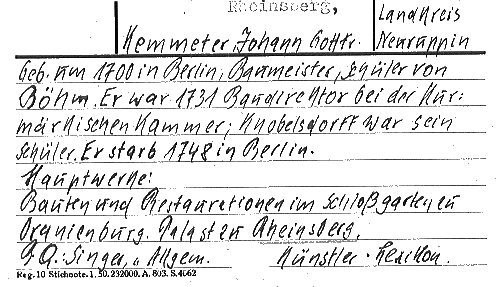 Rheinsberg,
Landkreis
Kemmeter, Johann Gottfr. Neuruppin
Geb. um 1700 in Berlin, Baumeister, Schüler von
Böhm. Er war 1731 Baudirektor bei der Kur:
märkischen Kammer; Knobelsdorff war sein
Schüler. Er starb 1748 in Berlin.
Hauptwerke:
Bauten und Restaurationen im Schloßgarten zu
Oranienburg. Palast zu Rheinsberg.
Singer, „ Allgem. Künstler - Lexikon.
Reg. 10 Stichnote. 1. 50. 232000. A. 803. S. 4062